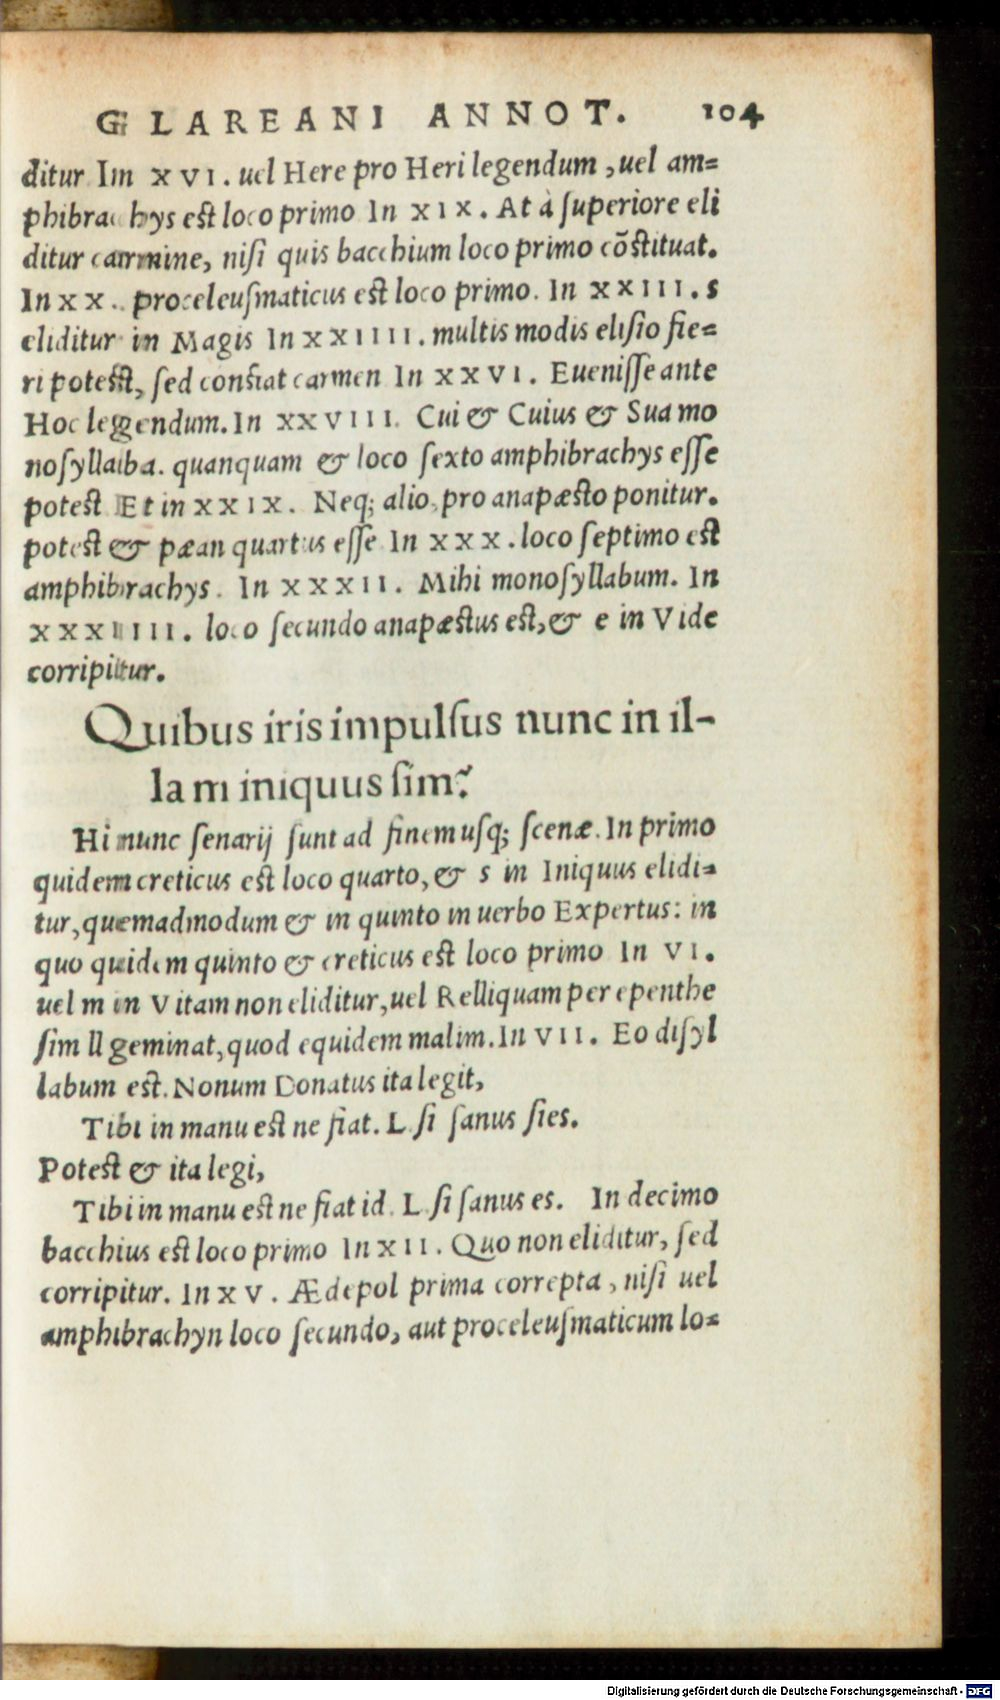 GLAREANI ANNOT. 104
ditur In XVI. uel Here pro Heri legendum, uel am=
phibrachys est loco primo In XIX. At à superiore eli
ditur carmine, nisi quis bacchium loco primo cōstituat.
In XX. proceleusmaticus est loco primo. In XXIII. s
eliditur in Magis In XXIIII. multis modis elisio fie=
ri potest, sed constat carmen In XXVI. Euenisse ante
Hoc legendum. In XXVIII. Cui & Cuius & Sua mo
nosyllaba. quanquam & loco sexto amphibrachys esse
potest Et in XXIX. Neq; alio, pro anapæsto ponitur.
potest & pæan quartus esse In XXX. loco septimo est
amphibrachys. In XXXII. Mihi monosyllabum. In
XXXIIII. loco secundo anapæstus est, & e in Vide
corripitur.
Quibus iris impulsus nunc in il-
lam iniquus sim?
Hi nunc senarij sunt ad finem usq; scenæ. In primo
quidem creticus est loco quarto, & s in Iniquus elidi=
tur, quemadmodum & in quinto in uerbo Expertus: in
quo quidem quinto & creticus est loco primo In VI.
uel m in Vitam non eliditur, uel Relliquam per epenthe
sim ll geminat, quod equidem malim. In VII. Eo disyl
labum est. Nonum Donatus ita legit,
Tibi in manu est ne fiat. L. si sanus sies.
Potest & ita legi,
Tibi in manu est ne fiat id. L. si sanus es. In decimo
bacchius est loco primo In XII. Quo non eliditur, sed
corripitur. In XV. Ædepol prima correpta, nisi uel
amphibrachyn loco secundo, aut proceleusmaticum lo=
Digitalisierung gefördert durch die Deutsche Forschungsgemeinschaft - DFG